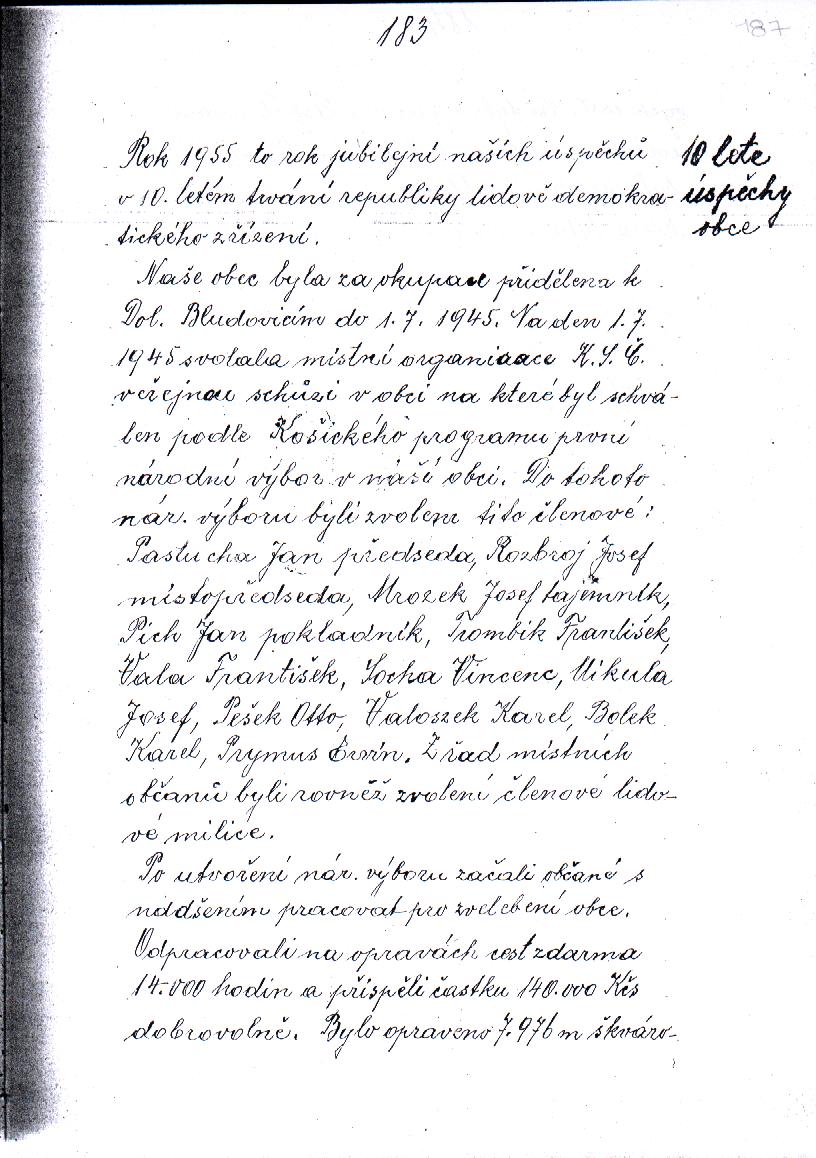 183
187
Rok 1955 to rok jubilejní našich úspěchů
v 10. letém trvání republiky lidově demokra-
tického zřízení.
10 leté
úspěchy
obce
Naše obec byla za okupace přidělena k
Dol. Bludovicím do 1. 7. 1945. Na den 1. 7.
1945 svolala místní organisace K. S. Č.
veřejnou schůzi v obci na které byl schvá-
len podle Košického programu první
národní výbor v naší obci. Do tohoto
nár. výboru byli zvoleni tito členové:
Pastucha Jan předseda, Rozbroj Josef
místopředseda, Mrozek Josef tajemník,
Pich Jan pokladník, Trombik František,
Vala František, Socha Vincenc, Mikula
Josef, Pešek Otto, Valoszek Karel, Bolek
Karel, Prymus Ervín. Z řad místních
občanů byli rovněž zvolení členové lido-
vé milice.
Po utvoření nár. výboru začali občané s
naddšením pracovat pro zvelebení obce.
Odpracovali na opravách cest zdarma
14.000 hodin a přispěli častku 140.000 Kčs
dobrovolně. Bylo opraveno 7.976 m škváro-